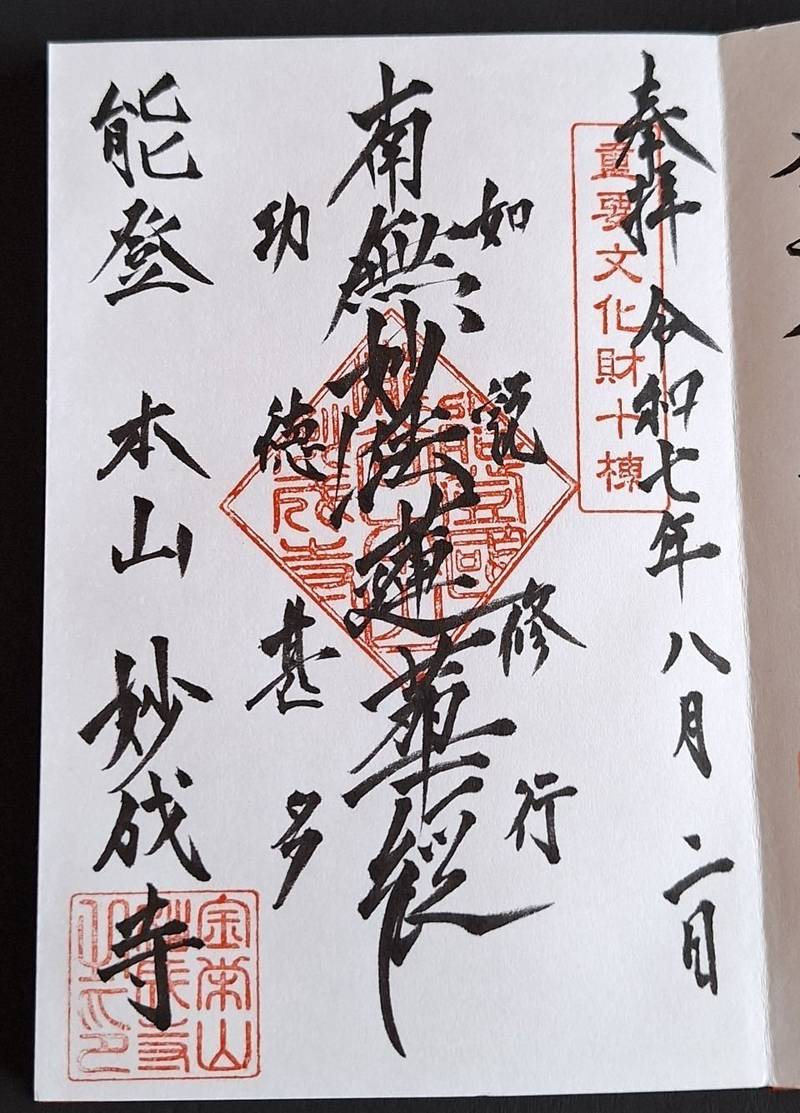 奉拝 令和七年 八月 二日
重要文化財十棟
如説修行
南無妙法蓮華経
功徳甚多
能登 本山 妙成寺
金栄山
妙成寺